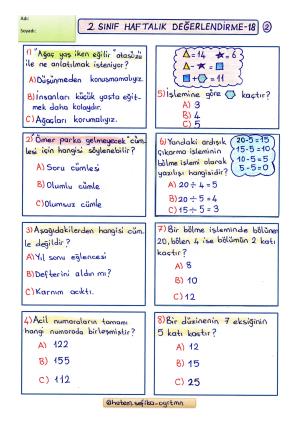 Adı:
Soyadı:
2. SINIF HAFTALIK DEĞERLENDİRME-18 2
1) "Ağaç yaş iken eğilir" atasözü
ile ne anlatılmak isteniyor?
A) Düşünmeden konuşmamalıyız.
B) İnsanları küçük yaşta eğit-
mek daha kolaydır.
C) Ağaçları korumalıyız.
2) "Ömer parka gelmeyecek" cüm-
lesi için hangisi söylenebilir?
A) Soru cümlesi
B) Olumlu cümle
C) Olumsuz cümle
3) Aşağıdakilerden hangisi cüm-
le değildir?
A) Yıl sonu eğlencesi
B) Defterini aldın mı?
C) Karnım acıktı.
4) Acil numaraların tamamı
hangi numarada birleşmiştir?
A) 122
B) 155
C) 112
= 14 = 6
- =
+ = 11
5) İşlemine göre kaçtır?
A) 3
B) 4
C) 5
6) Yandaki ardışık
çıkarma işleminin
bölme işlemi olarak
yazılışı hangisidir?
20-5=15
15-5=10
10-5=5
5-5=0
A) 20÷4=5
B) 20÷5=4
C) 15÷5=3
7) Bir bölme işleminde bölünen
20, bölen 4 ise bölümün 2 katı
kaçtır?
A) 8
B) 10
C) 12
8) Bir düzinenin 7 eksiğinin
5 katı kaçtır?
A) 12
B) 15
C) 25
@hatem.sefika_ogrtmn